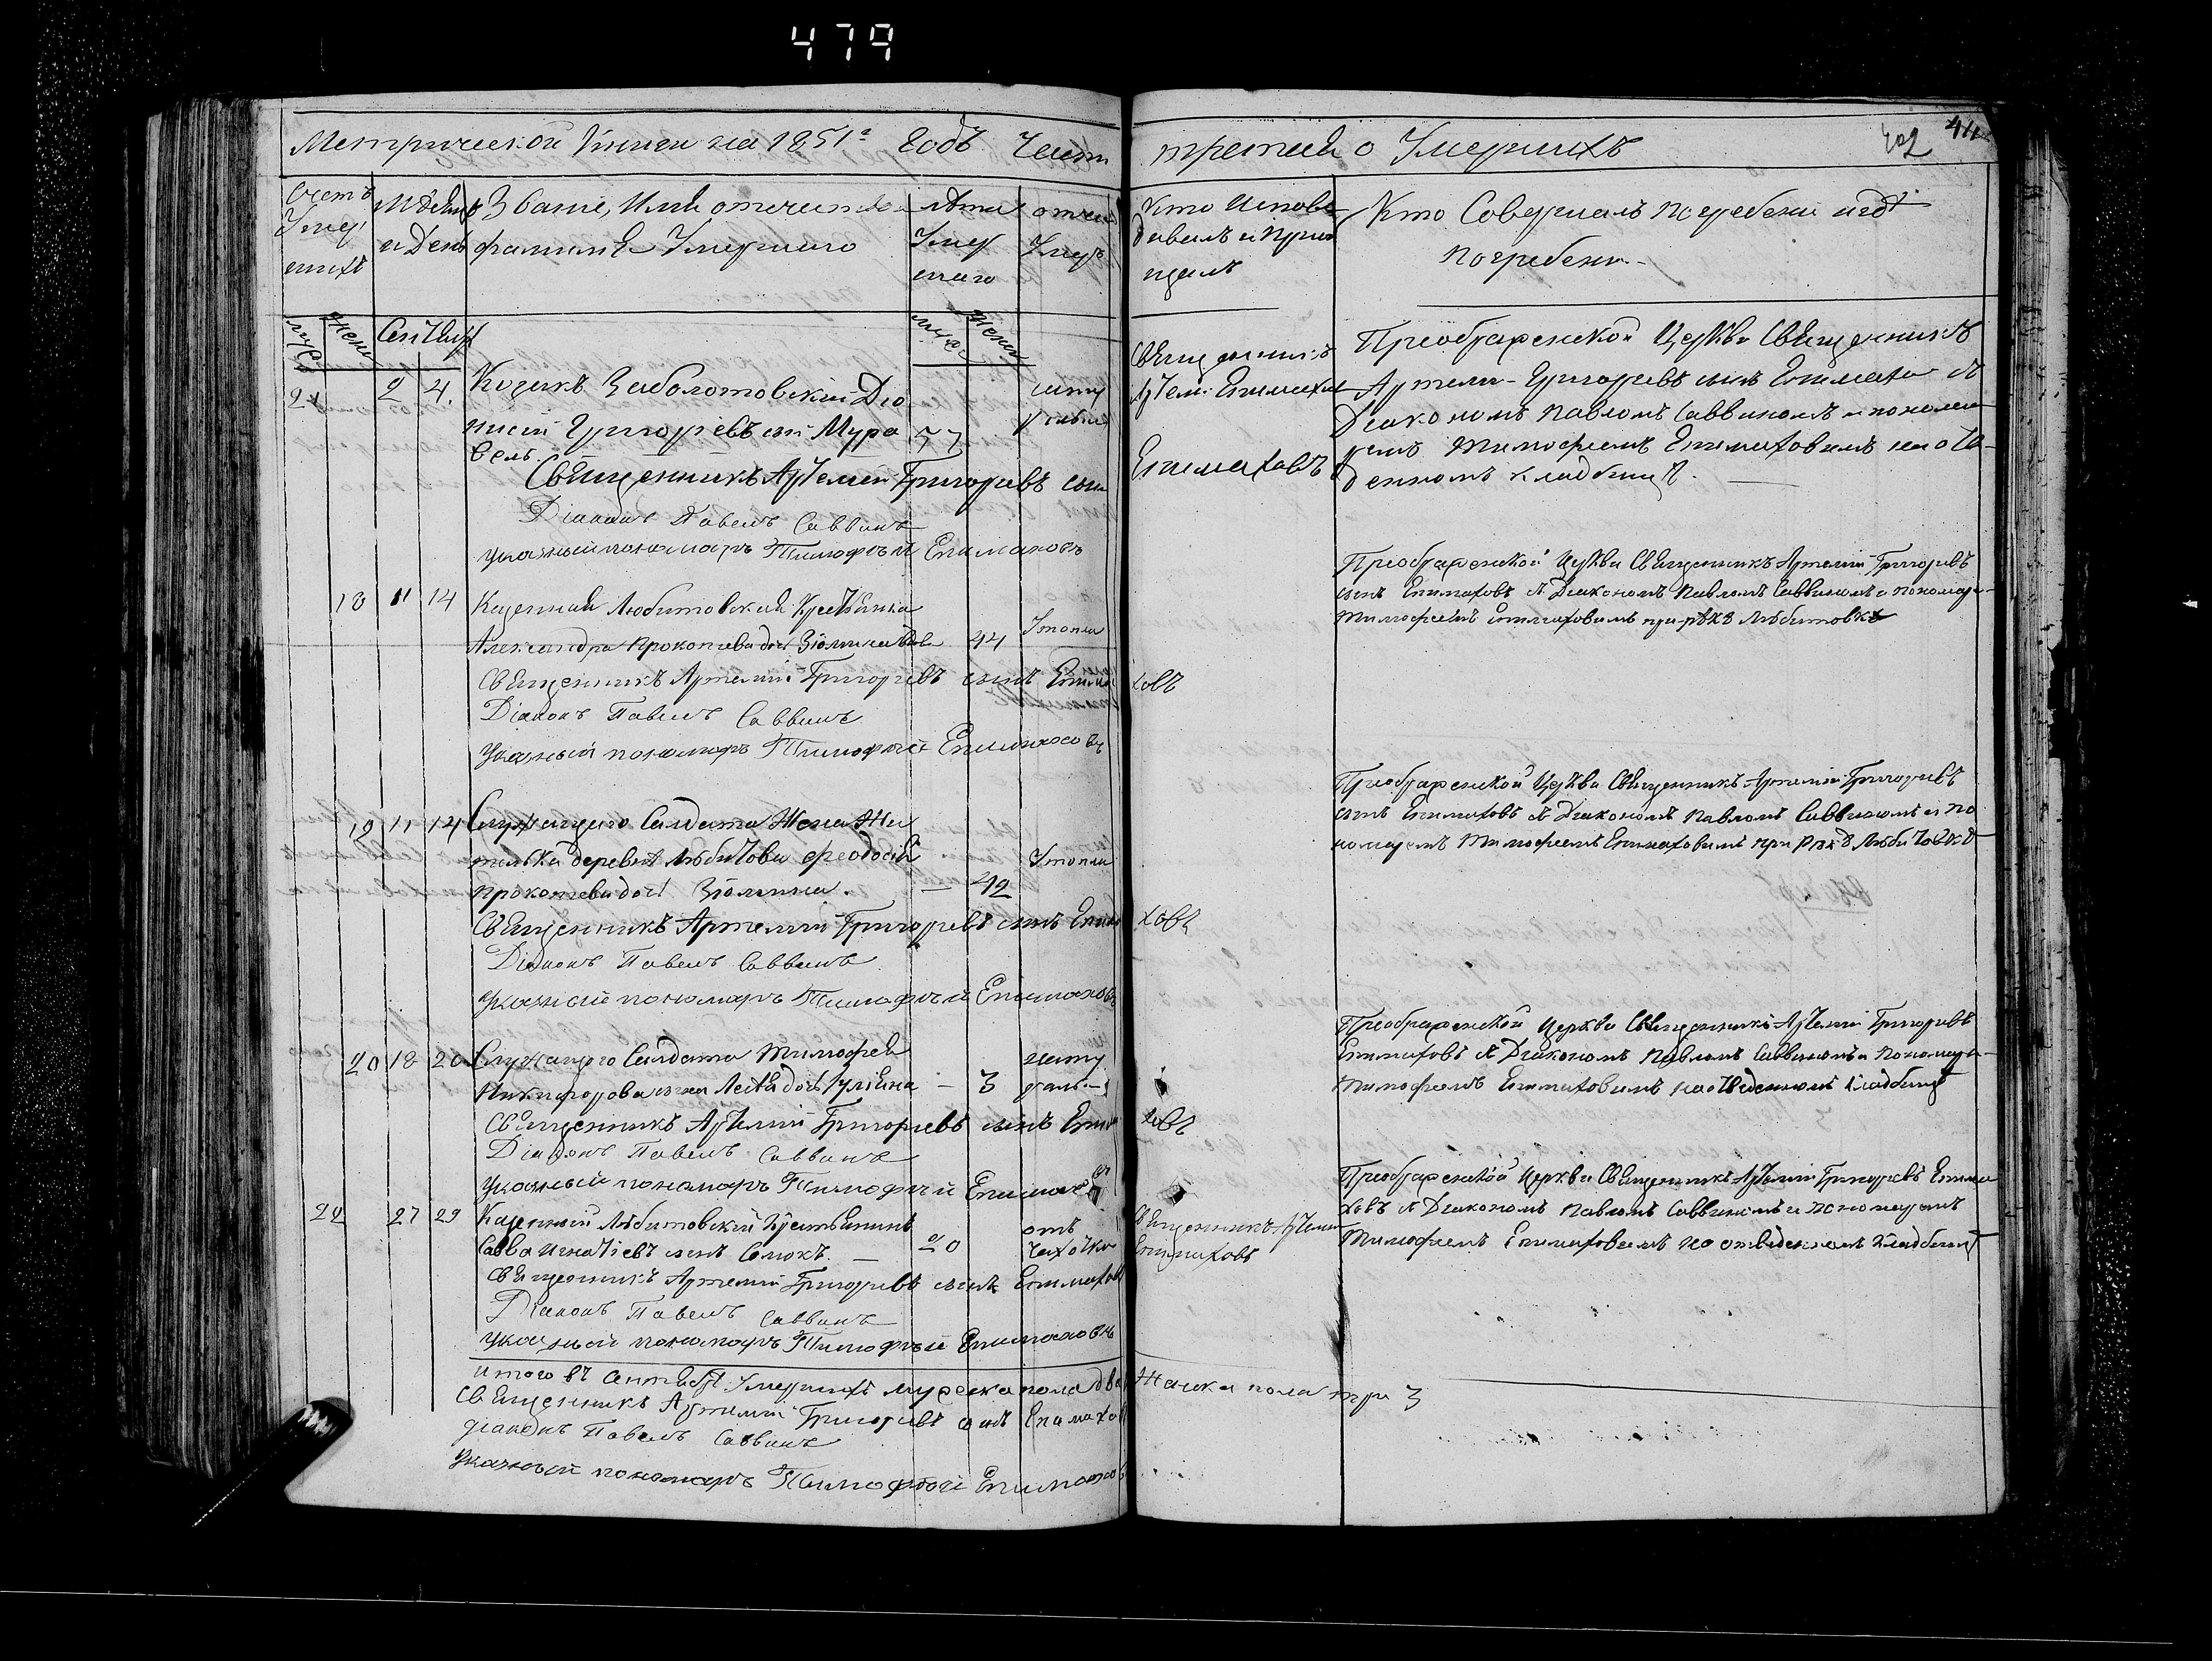 479
Метрической Книги на 1851г Годъ Части третей о Умершихъ
402 44
Счетъ Умершихъ
М. День и День
Званіе, Имя отечество фамиліе Умершаго
Лета Умершаго
отчего Умеръ
Кто Исповедывалъ и Приобщалъ
Кто Совершалъ погребеніе и гдѣ погребены
муж. жен. Сентябр муж. жен.
21 2 4. Козакъ Заболотовскій Дио
нисій Григорьевъ сын Мура 57
вель
Священникъ Артемій Григорьевъ сынъ
Діаконъ Павелъ Саввинъ
указный пономарь Тимофѣй Епимаховъ
Священникъ
Артемій Епимахов
Епимаховъ
Преображенской Церкви Священникъ
Артемій Григорьевъ сынъ Епимаховъ съ
Діакономъ Павломъ Саввинымъ и понома
ремъ Тимофеемъ Епимаховымъ на отве
денномъ кладбищѣ.
18 11 14 Казенная Любитовская Крестьянка
Александра Прокопиева доч 44 Утопла
Священникъ Артемій Григорьевъ сынъ Епимаховъ
Діаконъ Павелъ Саввинъ
Указный пономарь Тимофѣй Епимаховъ
Преображенской Церкви Священникъ Артемій Григорьевъ
сынъ Епимаховъ съ Діакономъ Павломъ Саввинымъ и пономаре
Тимофеемъ Епимаховымъ при рѣкѣ Любитовкѣ
19 11 14 Служащаго Салдата Жена Жи
телька деревни Любитова Феодосія Утопла
Прокопиева доч — 42
Священникъ Артемій Григорьевъ сынъ Епимаховъ
Діаконъ Павелъ Саввинъ
указный пономарь Тимофѣй Епимаховъ
Преображенской Церкви Священникъ Артемій Григорьевъ
сынъ Епимаховъ съ Діакономъ Павломъ Саввинымъ и по
номаремъ Тимофеемъ Епимаховымъ при Рекѣ Любитовкѣ
20 18 20 Служащого Салдата Тимофея
Никифорова сына доч Іуліяна — 3
Священникъ Артемій Григорьевъ сынъ Епимаховъ
Діаконъ Павелъ Саввинъ
Указный пономарь Тимофѣй Епимаховъ
Преображенской Церкви Священникъ Артемій Григорьевъ
Епимаховъ съ Діакономъ Павломъ Саввинымъ и Пономаре
Тимофеемъ Епимаховымъ на отведенномъ Кладбищѣ
22 27 29 Казенный Любитовскій Крестьянинъ отъ
Савва Игнатіевъ сынъ — 20 чахотки
Священникъ Артемій
Епимаховъ
Священникъ Артемій Григорьевъ сынъ Епимаховъ
Діаконъ Павелъ Саввинъ
указный пономарь Тимофѣй Епимаховъ
Преображенской Церкви Священникъ Артемій Григорьевъ Епима
ховъ съ Діакономъ Павломъ Саввинымъ и пономаремъ
Тимофеемъ Епимаховымъ на отведенномъ Кладбищѣ
итого въ Сентябрѣ Умершихъ мужеска пола два Женска пола три 3
Священникъ Артемій Григорьевъ сынъ Епимахов
Діаконъ Павелъ Саввинъ
Указный пономарь Тимофѣй Епимахов